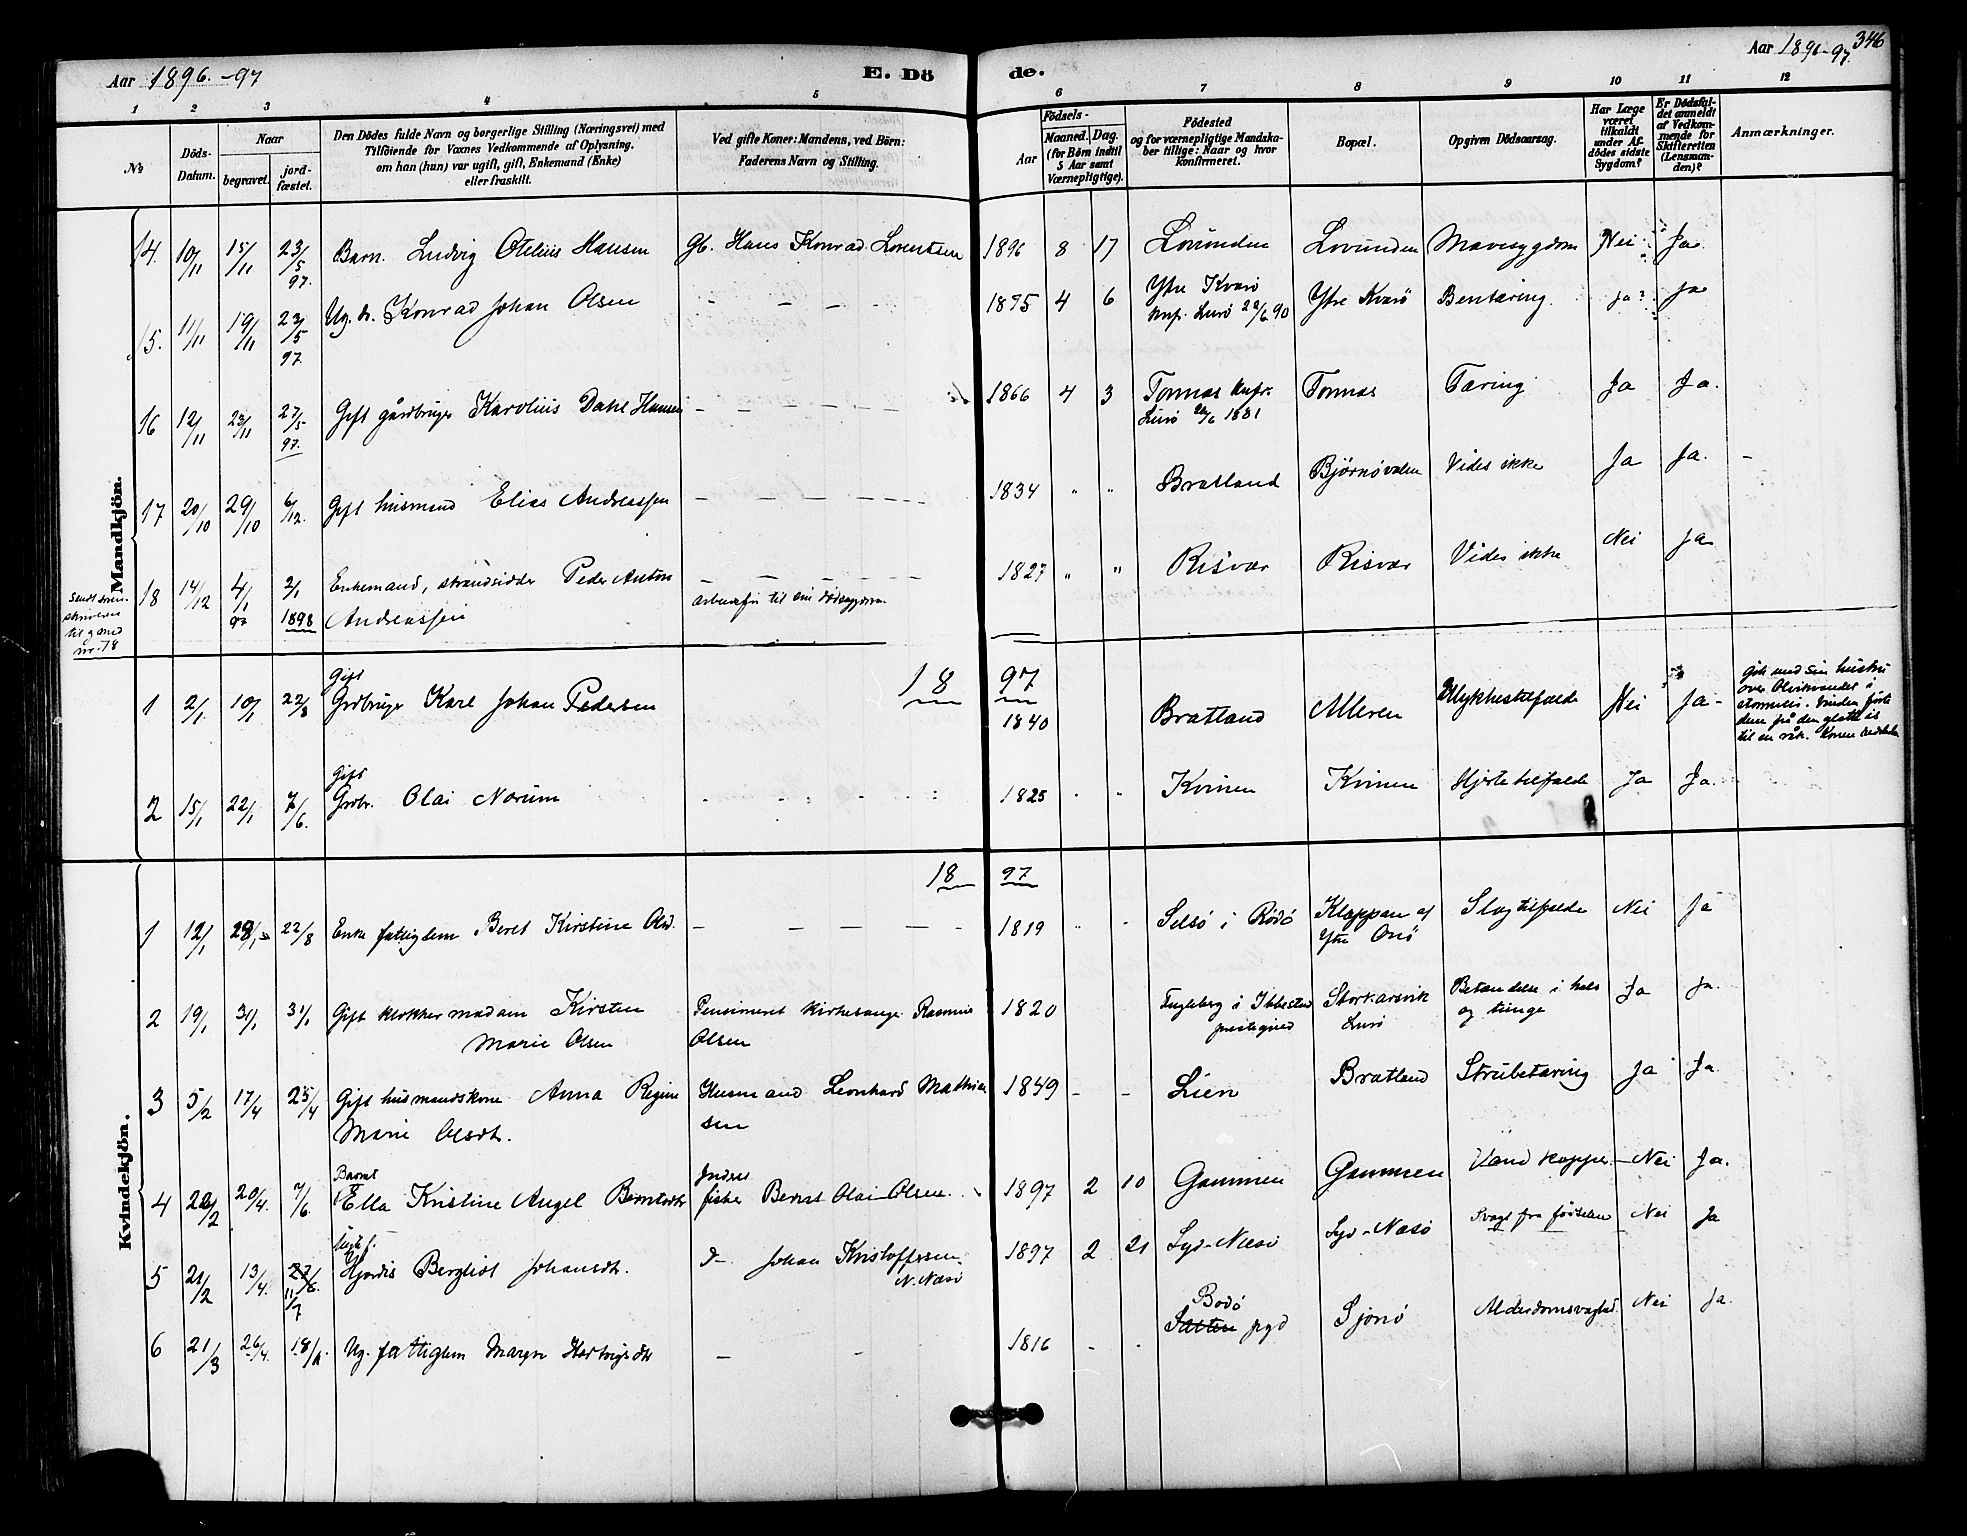 Aar 1896.-97
E. Dö
de.
Aar 1896-97. 346
1 2 3 4 5 6 7 8 9 10 11 12
№
Döds-Datum.
Naar
begravet.
jordfæstet.
Den Dödes fulde Navn og borgerlige Stilling (Næringsvei) med
Tilföiende for Voxnes Vedkommende af Oplysning,
om han (hun) var ugift, gift, Enkemand (Enke)
eller fraskilt.
Ved gifte Koner: Mandens, ved Börn:
Faderens Navn og Stilling.
Födsels-
Aar
Maaned. Dag.
(for Börn indtil
5 Aar samt
Værnepligtige).
Födested
og for værnepligtige Mandskaber tillige: Naar og hvor
konfirmeret.
Bopæl.
Opgiven Dödsaarsag.
Har Læge været tilkaldt under Afdödes sidste Sygdom?
Er Dödsfaldet anmeldt af Vedkommende for Skifteretten (Lensmanden)?
Anmærkninger.
Mandkjön.
14. 10/11 15/11 23/5 97. Barn. Ludvig Otelius Hansen Gb. Hans Konrad Lorentsen 1896 8 17 Lovunden Lovunden Mavesygdom Nei Ja
15. 11/11 19/11 23/5 97. Ug. Konrad Johan Olsen 1875 4 6 Ytre Kvarö Ytre Kvarö Bentæring. ja? Ja
konf. Lurö 22/6 90
16 12/11 23/11 27/5 97. Gift gårdbruger Karolius Dahl Hansen 1866 4 3 Tonnas konfr. Tonnas Tæring Ja Ja.
Lurö 26/6 1881
17 20/10 29/10 6/12. Gift husmand Elias Andreassen 1834 " " Bratland Björnövalen Vides ikke Ja Ja. -
18 14/12 4/1 97 2/1 1898 Enkemand, strandsidder Peder Anton 1827 " " Risvær Risvær Vides ikke Nei Ja
Andreassen arbeidsför til sin dödssygdom.
Sendt sorenskriveren
til g
nr. 78
18 97
1 2/1 10/1 22/8 Gift
Grdbruger Karl Johan Pedersen 1840 Bratland Alleren Ulykkestilfælde Nei Ja-
Gik med sin hustru
over Olvikvandet i
stormveir. Vinden förte
dem på den glatte is
til en råk. Konen
2 15/1 22/1 7/6. Gift
Grdbr. Olai Norum 1825 " Kvinen Kvinen Hjertetilfælde Ja Ja.
Kvindekjön.
18 97
1 12/1 28/1 22/8 Enke fattiglem Beret Kirstine Olsd. 1819 " " Selsö i Rödö Klæppan af Slagtilfælde Nei Ja
Ytre Onö
2 19/1 31/1 31/1 Gift klokkermadam Kirsten Pensioneret kirkesanger Rasmus 1820 i Ibbestad Storkarsvik Betændelse i hals Ja Ja.
Marie Olsen Olsen præstegjeld Lurö og tunge
3 5/2 17/4 25/4 Gift husmandskone Anna Regine Husmand Leonhard Mathia 1849 - - Lien Bratland Strubetæring Ja Ja.
Marie Olsdt. sen
4 20/2 20/4. 7/6. Barnet Inderst
Ella Kristine Angel Berntsdtr fisker Bernt Olai Olsen 1897 2 10 Gammen Gammen Vandkopper. Nei Ja.
5 21/2 13/4. 27/6. 11/7 Hjordis Bergliot Johansdt. d- Johan Kristoffersen. 1897 2 21 Syd-Næsö Syd-Næsö Svagt fra födselen Nei Ja
N. Næsö
6 21/3 26/4. 18/ Ug. fattiglem Hartvigsdtr 1816 - - Bodö
Salten pgd Sjonö Alderdomssvaghed. Nei Ja.